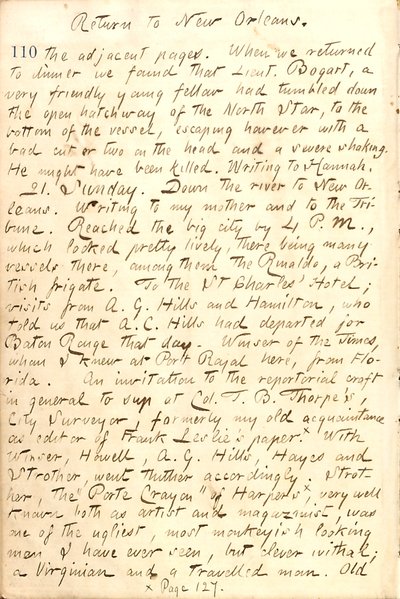 Return to New Orleans.
110 the adjacent pages. When we returned
to dinner we found that Lieut. Bogart, a
very friendly young fellow had tumbled down
the open hatchway of the North Star, to the
bottom of the vessel, escaping however with a
bad cut or two on the head and a severe shaking.
He might have been killed. Writing to Hannah.
21. Sunday. Down the river to New Or-
leans. Writing to my mother and to the Tri-
bune. Reached the big city by 4 P.M.,
which looked pretty lively, there being many
vessels there, among them the Rinaldo, a Bri-
tish frigate. To the St Charles' Hotel;
visits from A. G. Hills and Hamilton, who
told us that A. C. Hills had departed for
Baton Rouge that day. Winser of the Times,
whom I knew at Port Royal here, from Flo-
rida. An invitation to the reportorial craft
in general to sup at Col. T. B. Thorpe's,
City Surveyor, formerly my old acquaintance
as editor of Frank Leslie's paper.x With
Winser, Howell, A. G. Hills, Hayes and
Strother, went thither accordingly. Strot-
her, the "Porte Crayon" of Harper's x, very well
known both as artist and magazinist, was
one of the ugliest, most monkeyish looking
men I have ever seen, but clever withal;
a Virginian and a travelled man. Old
x Page 127.